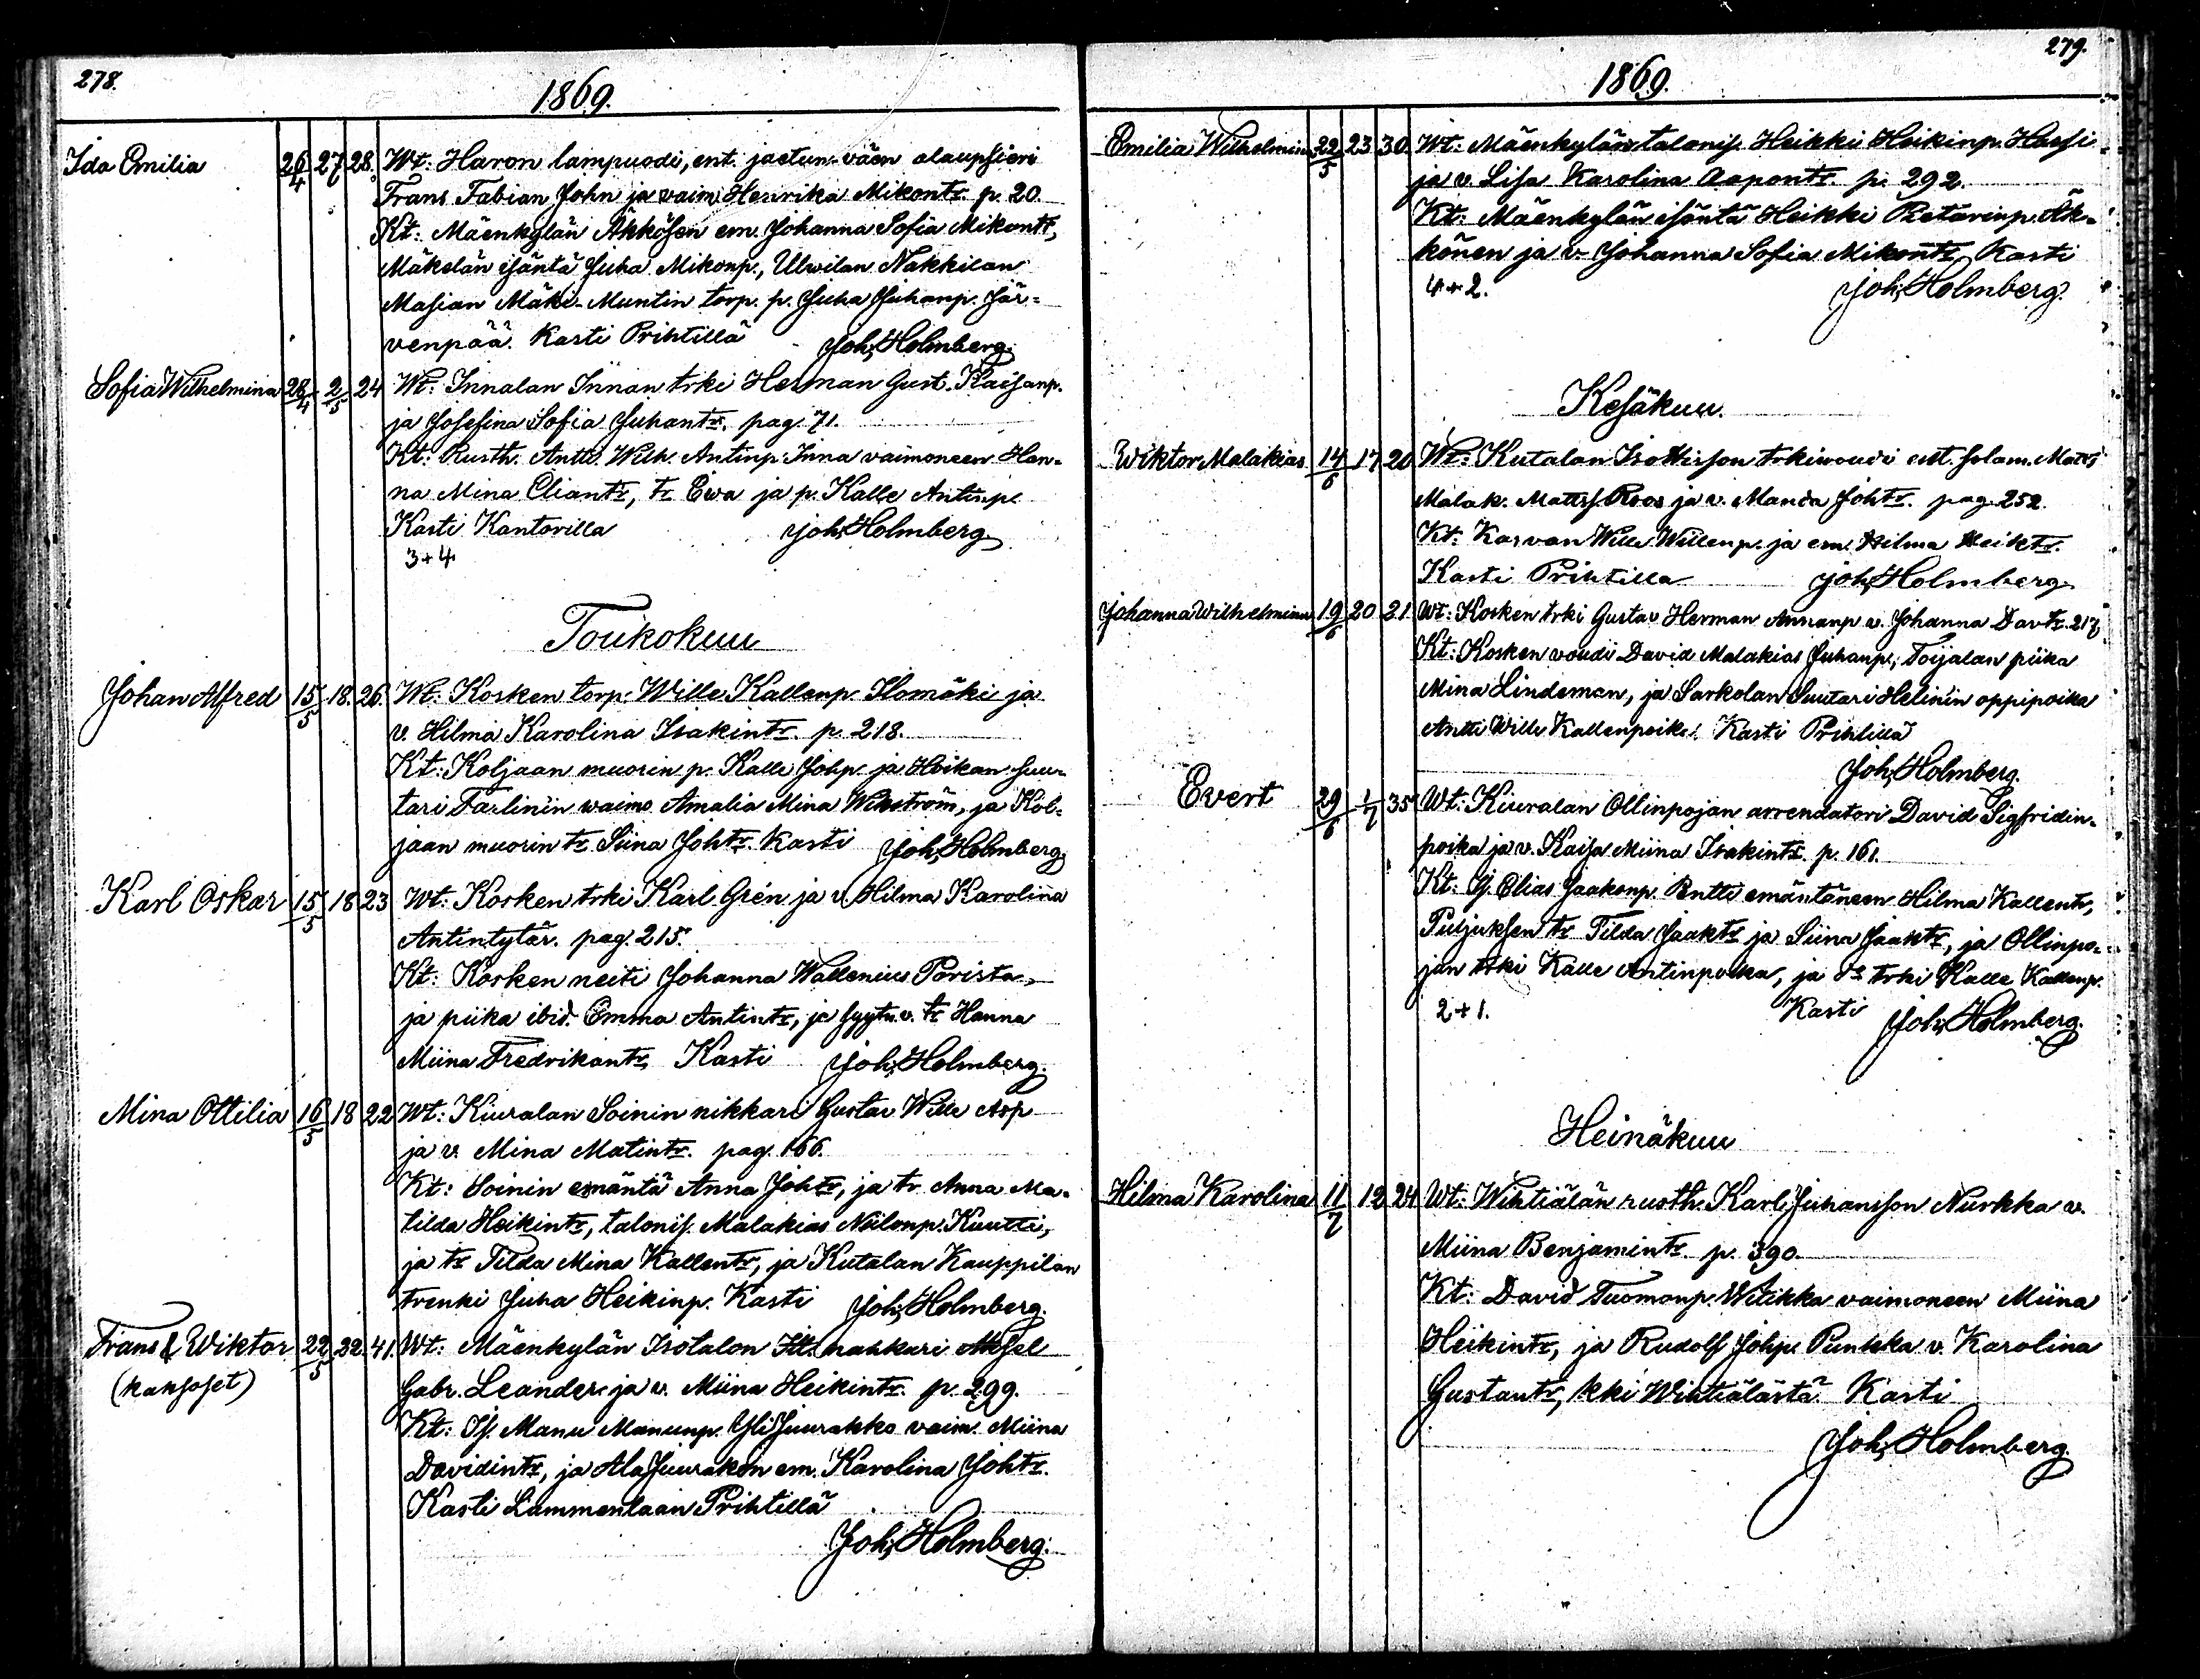 278.
1869.
Ida Emilia 26/4 27 28. Wt: Haron lampuodi, ent. jaetun-väen alaupsieri
Frans Fabian John ja vaim Henrika Mikontr. p. 20.
Kt: Mäenkylän Äkkösen em. Johanna Sofia Mikontr,
Mäkelän isäntä Juha Mikonp., Ulwilan Nakkilan
Masian Mäki-Muntin torp. p. Juha Juhanp. Jär=
venpää. Kasti Prihtillä Joh. Holmberg.
Sofia Wilhelmina 28/4 2/5 24 Wt: Innalan Innan trki Herman Gust. Kaisanp.
ja Josefina Sofia Juhantr. pag. 71.
Kt: Rusth. Antti Wilh. Antinp. Inna vaimoneen Han=
na Mina Eliantr, tr Ewa ja p. Kalle Antinp.
Kasti Kantorilla Joh. Holmberg.
3+4
Toukokuu
Johan Alfred 15/5 18. 26. Wt: Kosken torp. Wille Kallenp. Ilomäki ja
v. Hilma Karolina Isakintr. p. 218.
Kt: Koljaan muorin p. Kalle Johp. ja Hoikan suu=
tari Farlinin waimo Amalia Mina Wikström, ja Kol=
jaan muorin tr Siina Johtr. Kasti Joh. Holmberg.
Karl Oskar 15/5 18 23 Wt: Kosken trki Karl Grén ja v. Hilma Karolina
Antintytär. pag. 215.
Kt: Kosken neiti Johanna Wallenius Porista,
ja piika ibid. Emma Antintr, ja syytn. v. tr Hanna
Miina Fredrikantr, Kasti Joh. Holmberg.
Mina Ottilia 16/5 18 22 Wt: Kiuralan Soinin nikkari Gustav Wille Asp
ja v. Mina Matintr. pag. 166.
Kt: Soinin emäntä Anna Johtr, ja tr Anna Ma=
tilda Heikintr, talonis. Malakias Niilonp. Kuutti,
ja tr Tilda Mina Kallentr, ja Kutalan Kauppilan
trenki Juha Heikinp. Kasti Joh. Holmberg.
Frans & Wiktor 22/5 22 41. Wt: Mäenkylän Isotalon Itt. nahkuri Aksel
(kaksoset) Gabr. Leander ja v. Miina Heikintr. p. 299.
Kt: Is. Manu Manunp. Yli Juurakko vaim. Miina
Davidintr, ja Ala Juurakon em. Karolina Johtr.
Kasti Lammentaan Prihtillä
Joh. Holmberg.
279.
1869.
Emilia Wilhelmin 22/5 23 30. Wt: Mäenkylän talonis. Heikki Heikinp. Hassi
ja v. Lisa Karolina Aapontr. p. 292.
Kt: Mäenkylän isäntä Heikki Pietarinp. Äk=
könen ja v. Johanna Sofia Mikontr, Kasti
4+2. Joh. Holmberg.
Kesäkuu.
Wiktor Malakias 14/6 17 20 Wt: Kutalan Iso trkiwoudi ent. solam. Matts
Malak. Mattss. Roos ja v. Manda Johtr. pag. 252.
Kt: Karvan Wille Willenp. ja em. Hilma Heiktr.
Kasti Prihtillä Joh. Holmberg.
Johanna Wilhelmina 19/6 20 21. Wt: Kosken trki Gustav Herman Annanp v. Johanna Davtr. 217,
Kt: Kosken voudi David Malakias Juhanp., Toijalan piika
Mina Lindeman, ja Sarkolan Suutari Helinin oppipoika
Antti Wille Kallenpoika. Kasti Prihtillä
Joh. Holmberg.
Evert 29/6 1/7 35 Wt: Kiuralan Ollinpojan arrendatori David Sigfridin=
poika ja v. Kaisa Miina Isakintr. p. 161.
Kt: Is. Elias Jaakonp. Pentti emäntäneen Hilma Kallentr,
Puljuksen tr Tilda Jaaktr ja Siina Jaaktr, ja Ollinpo=
jan trki Kalle Antinpoika, ja trki Kalle Kallenp.
2+1. Kasti Joh. Holmberg.
Heinäkuu
Hilma Karolina 11/7 12 24 Wt: Wihtiälän rusth. Karl Juhansson Nurkka v.
Miina Benjamintr. p. 390.
Kt: David Tuomanp. Witikka vaimoneen Miina
Heikintr, ja Rudolf Johp. Punkka v. Karolina
Gustantr, kki Wihtiälästä. Kasti
Joh. Holmberg